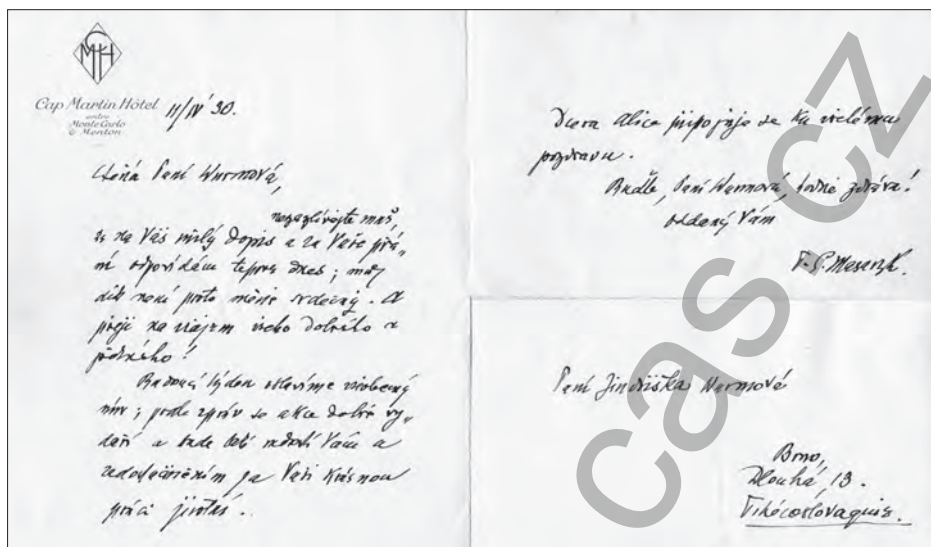 CMH
Cap Martin Hôtel
entre
Monte Carlo
& Menton
11/IV 30.
Ctěná Paní Wurmová,
nezazlívejte mně,
že na Váš milý dopis a za Vaše přá„
ní odpovídám teprve dnes; můj
dík není proto méně srdečný. A
přeji na vzájem všeho dobrého a
Budoucí týden oslavíme všeobecný
mír; podle zpráv se akce dobře vy„
daří a bude též radostí Vám a
zadostučiněním za Vaši krásnou
práci životní.
Dcera Alice připojuje se ku vřelému
pozdravu.
Buďte, Paní Wurmová, hodně zdráva!
oddaný Vám
T. G. Masaryk.
Paní Jindřiška Wurmová
Brno,
Dlouhá, 13.
Tchécoslovaquie.
cas cz